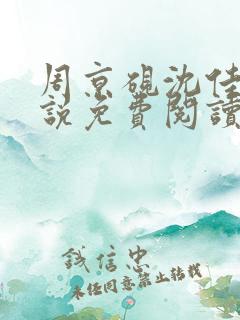 周京硯沈佳
說免費閱讀
錢信忠
未經同意禁止轉載